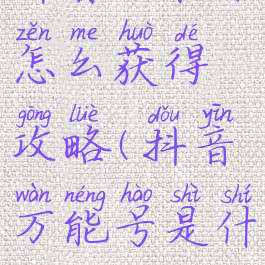 zěn me huò dé
怎么获得
gōng lüè dǒu yīn
攻略(抖音
wàn néng hào shì shí
万能号是什